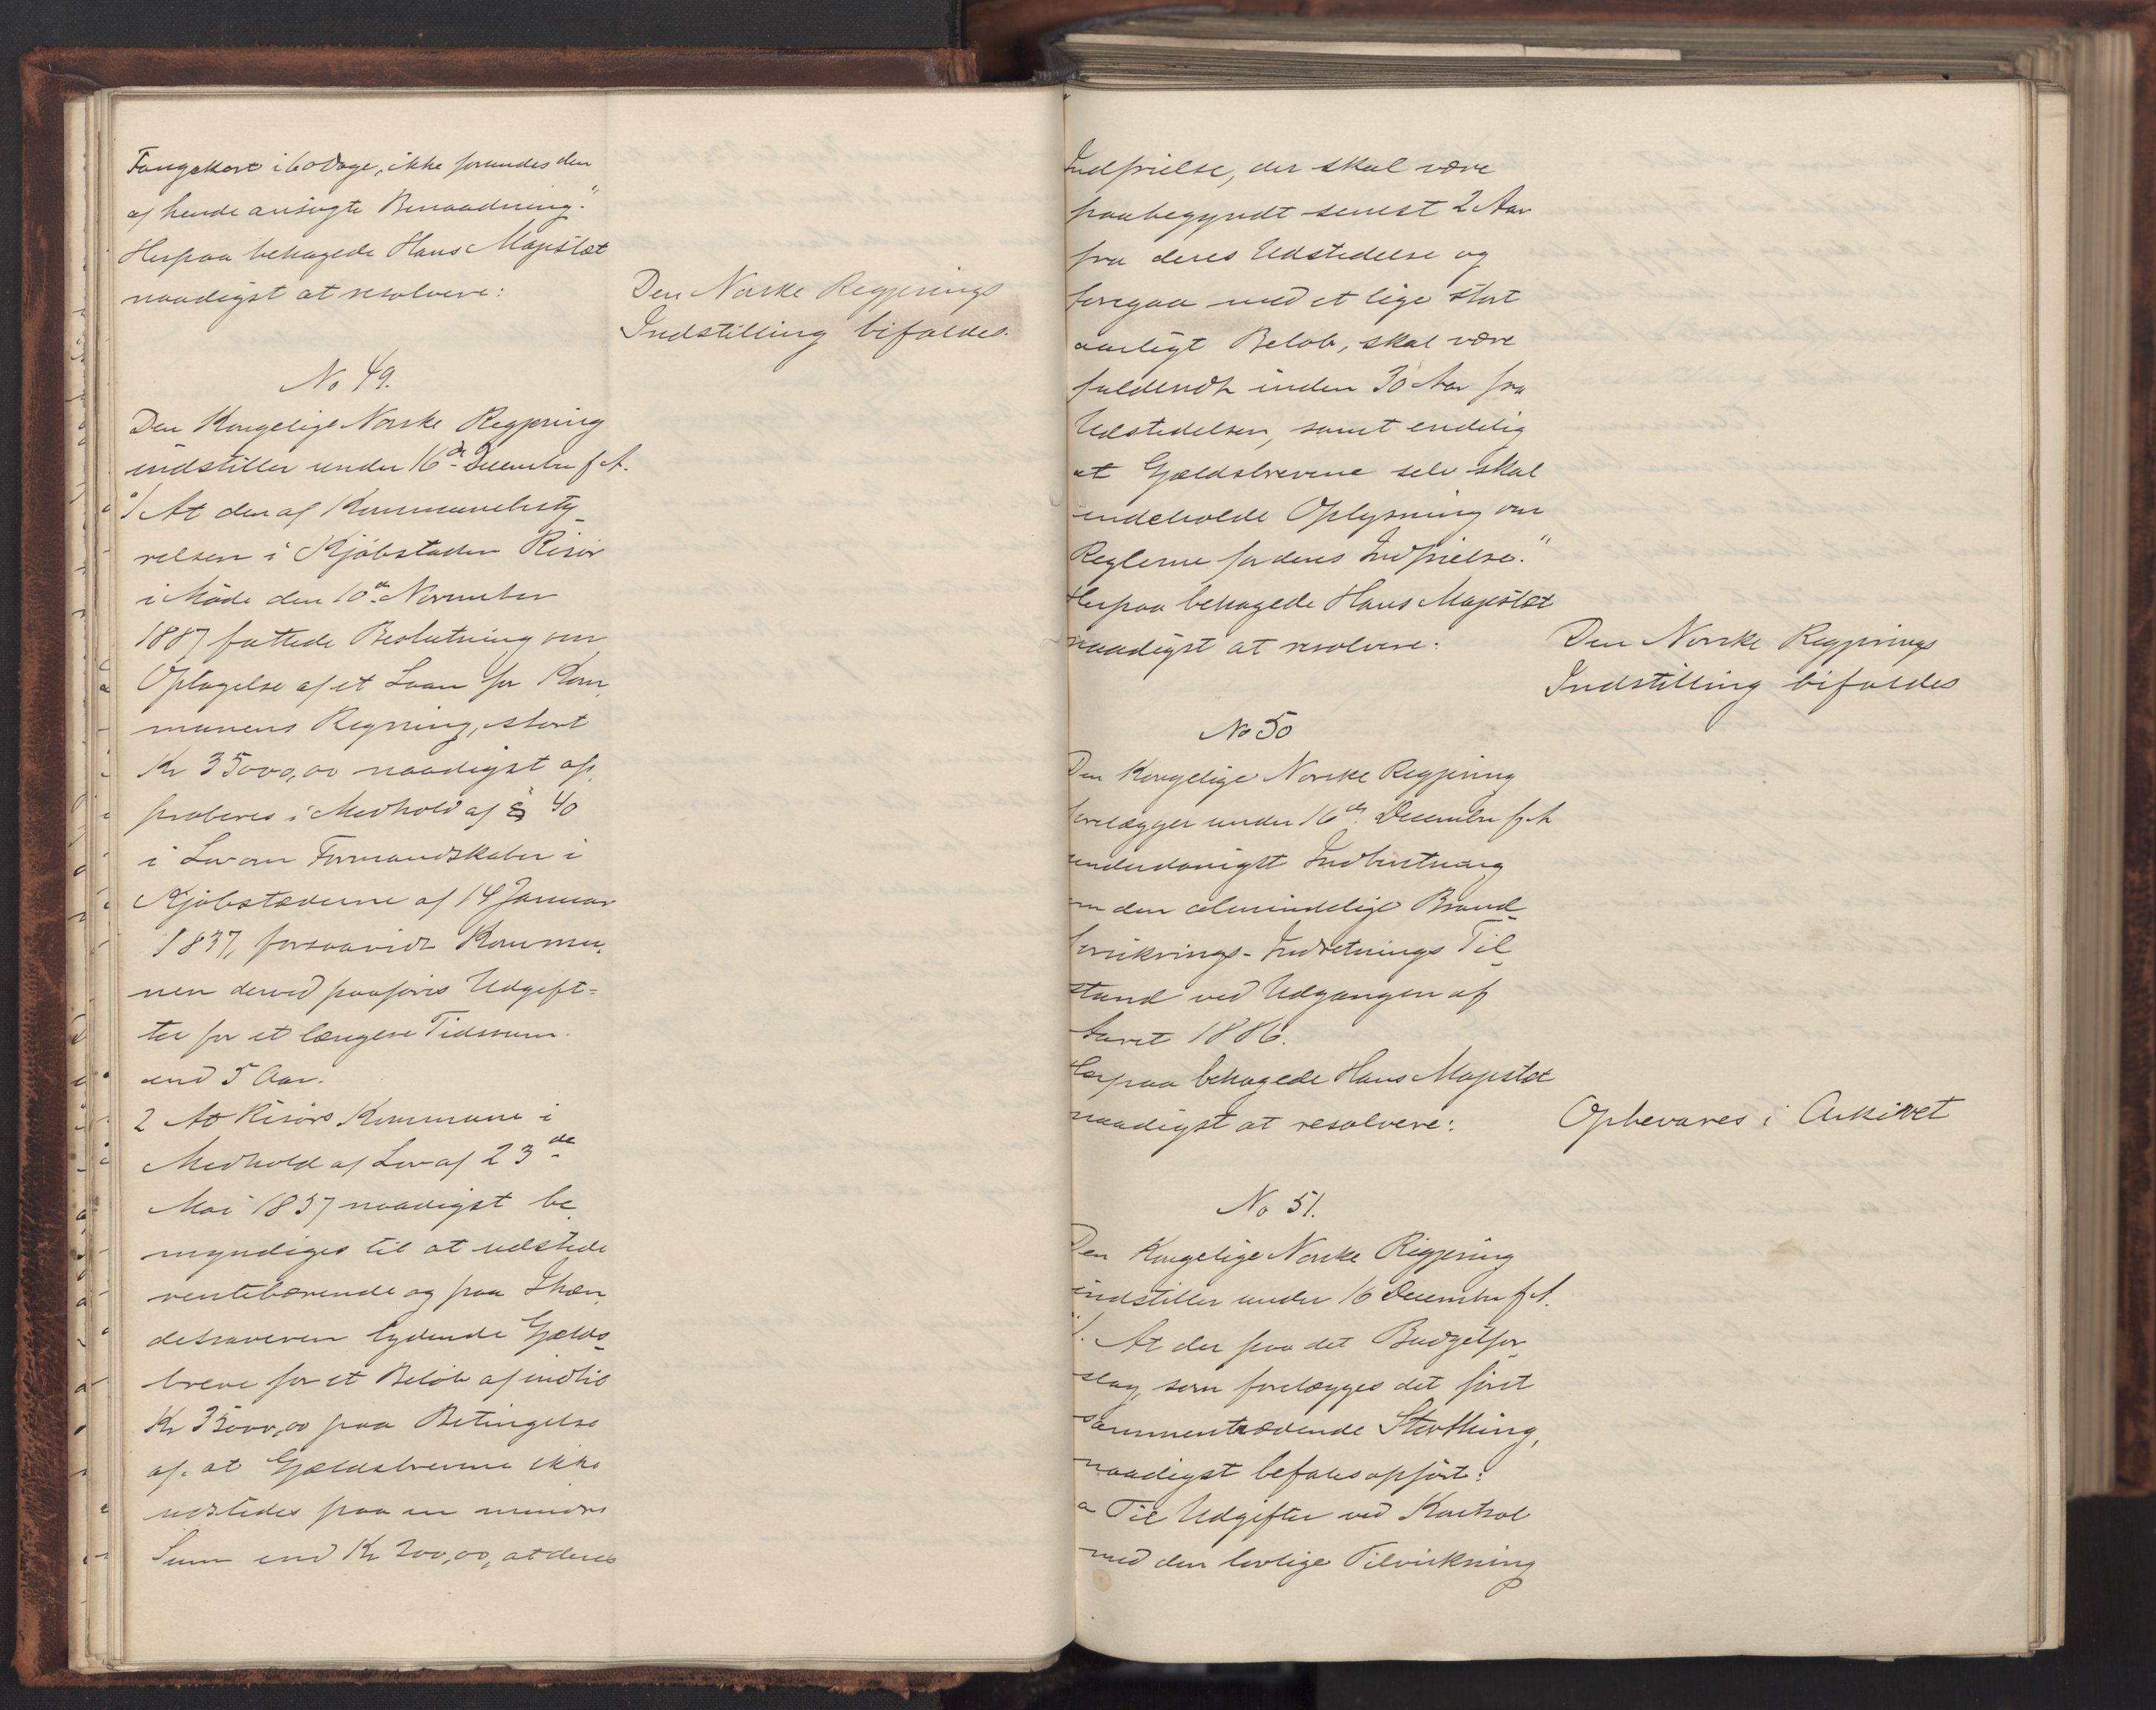 Fangekost i 60 Dage, ikke forundes den
af hende ansøgte Benaadning."
Herpaa behagede Hans Majestæt
naadigst at resolvere:
Den Norske Regjerings
Indstilling bifaldes.
No 49.
Den Kongelige Norske Regjering
indstiller under 16de December f. A.
"1/ At den af Kommunebesty
relsen i Kjöbstaden Risör
i Möde den 10de November
1887 fattede Beslutning om
Optagelse af et Laan for Kom
munens Regning, stort
Kr 35000,00 naadigst ap
proberes i Medhold af § 40
i Lov om Formandskaber i
Kjöbstæderne af 14 Januar
1837, forsaavidt Kommu
nen derved paaföres Udgift=
ter for et længere Tidsrum
end 5 Aar.
2 At Risörs Kommune i
Medhold af Lov af 23de
Mai 1857 naadigst be
myndiges til at udstede
rentebærende og paa Ihæn
dehaveren lydende Gjelds
breve for et Belöb af indtil
Kr 35000,00 paa Betingelse
af: at Gjældsbrevene ikke
udstedes paa en mindre
Sum end Kr 200,00, at deres
Indfrielse, der skal være
paabegyndt senest 2 Aar
fra deres Udstedelse og
foregaa med et lige stort
aarligt Belöb, skal være
fuldendt inden 30 Aar fra
Udstedelsen, samt endelig
at Gjældsbrevene selv skal
indeholde Oplysning om
Reglerne for deres Indfrielse."
Herpaa behagede Hans Majestæt
naadigst at resolvere:
Den Norske Regjerings
Indstilling bifaldes
No 50
Den Kongelige Norske Regjering
forelægger under 16de December f. A
underdanigst Indberetning
om den almindelige Brand
forsikrings-Indretnings Til
stand ved Udgangen af
Aaret 1886.
Herpaa behagede Hans Majestæt
naadigst at resolvere:
Opbevares i Arkivet
No 51.
Den Kongelige Norske Regjering
indstiller under 16 December f. A.
"1. At der paa det Budgetfor
slag, som forelægges det först
sammentrædende Storthing,
naadigst befales opfört:
a Til Udgifter ved Kontrol
med den lovlige Tilvirkning